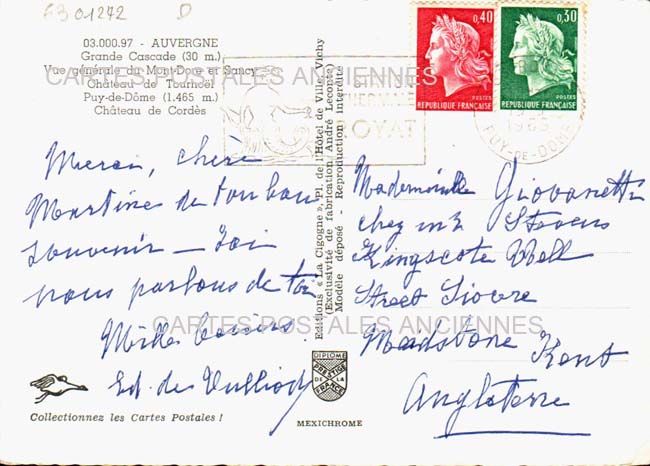 6301272 D
03.000.97 - AUVERGNE
Grande Cascade (30 m.)
Vue générale du Mont-Dore et Sancy
Château de Tournoël
Puy-de-Dôme (1.465 m.)
Château de Cordès
CARTES POSTALES ANCIENNES
Merci, chère
Martine de ton bon
souvenir - Ici
nous parlons de toi
Mille baisers
Ed. de
Collectionnez les Cartes Postales !
Editions « La Cigogne », Pl. de l'Hôtel de Ville, Vichy
(Exclusivité de fabrication André Leconte)
Modèle déposé - Reproduction interdite
DIPLOME
PRESTIGE
DE LA
FRANCE
MEXICHROME
ROYAT
0,40
POSTES
REPUBLIQUE FRANÇAISE
0,30
POSTES
REPUBLIQUE FRANÇAISE
PUY-DE-DOME
Mademoiselle Giovanetti
chez Stevens
Kingscote Well
Street
Maidstone Kent
Angleterre
CARTES POSTALES ANCIENNES